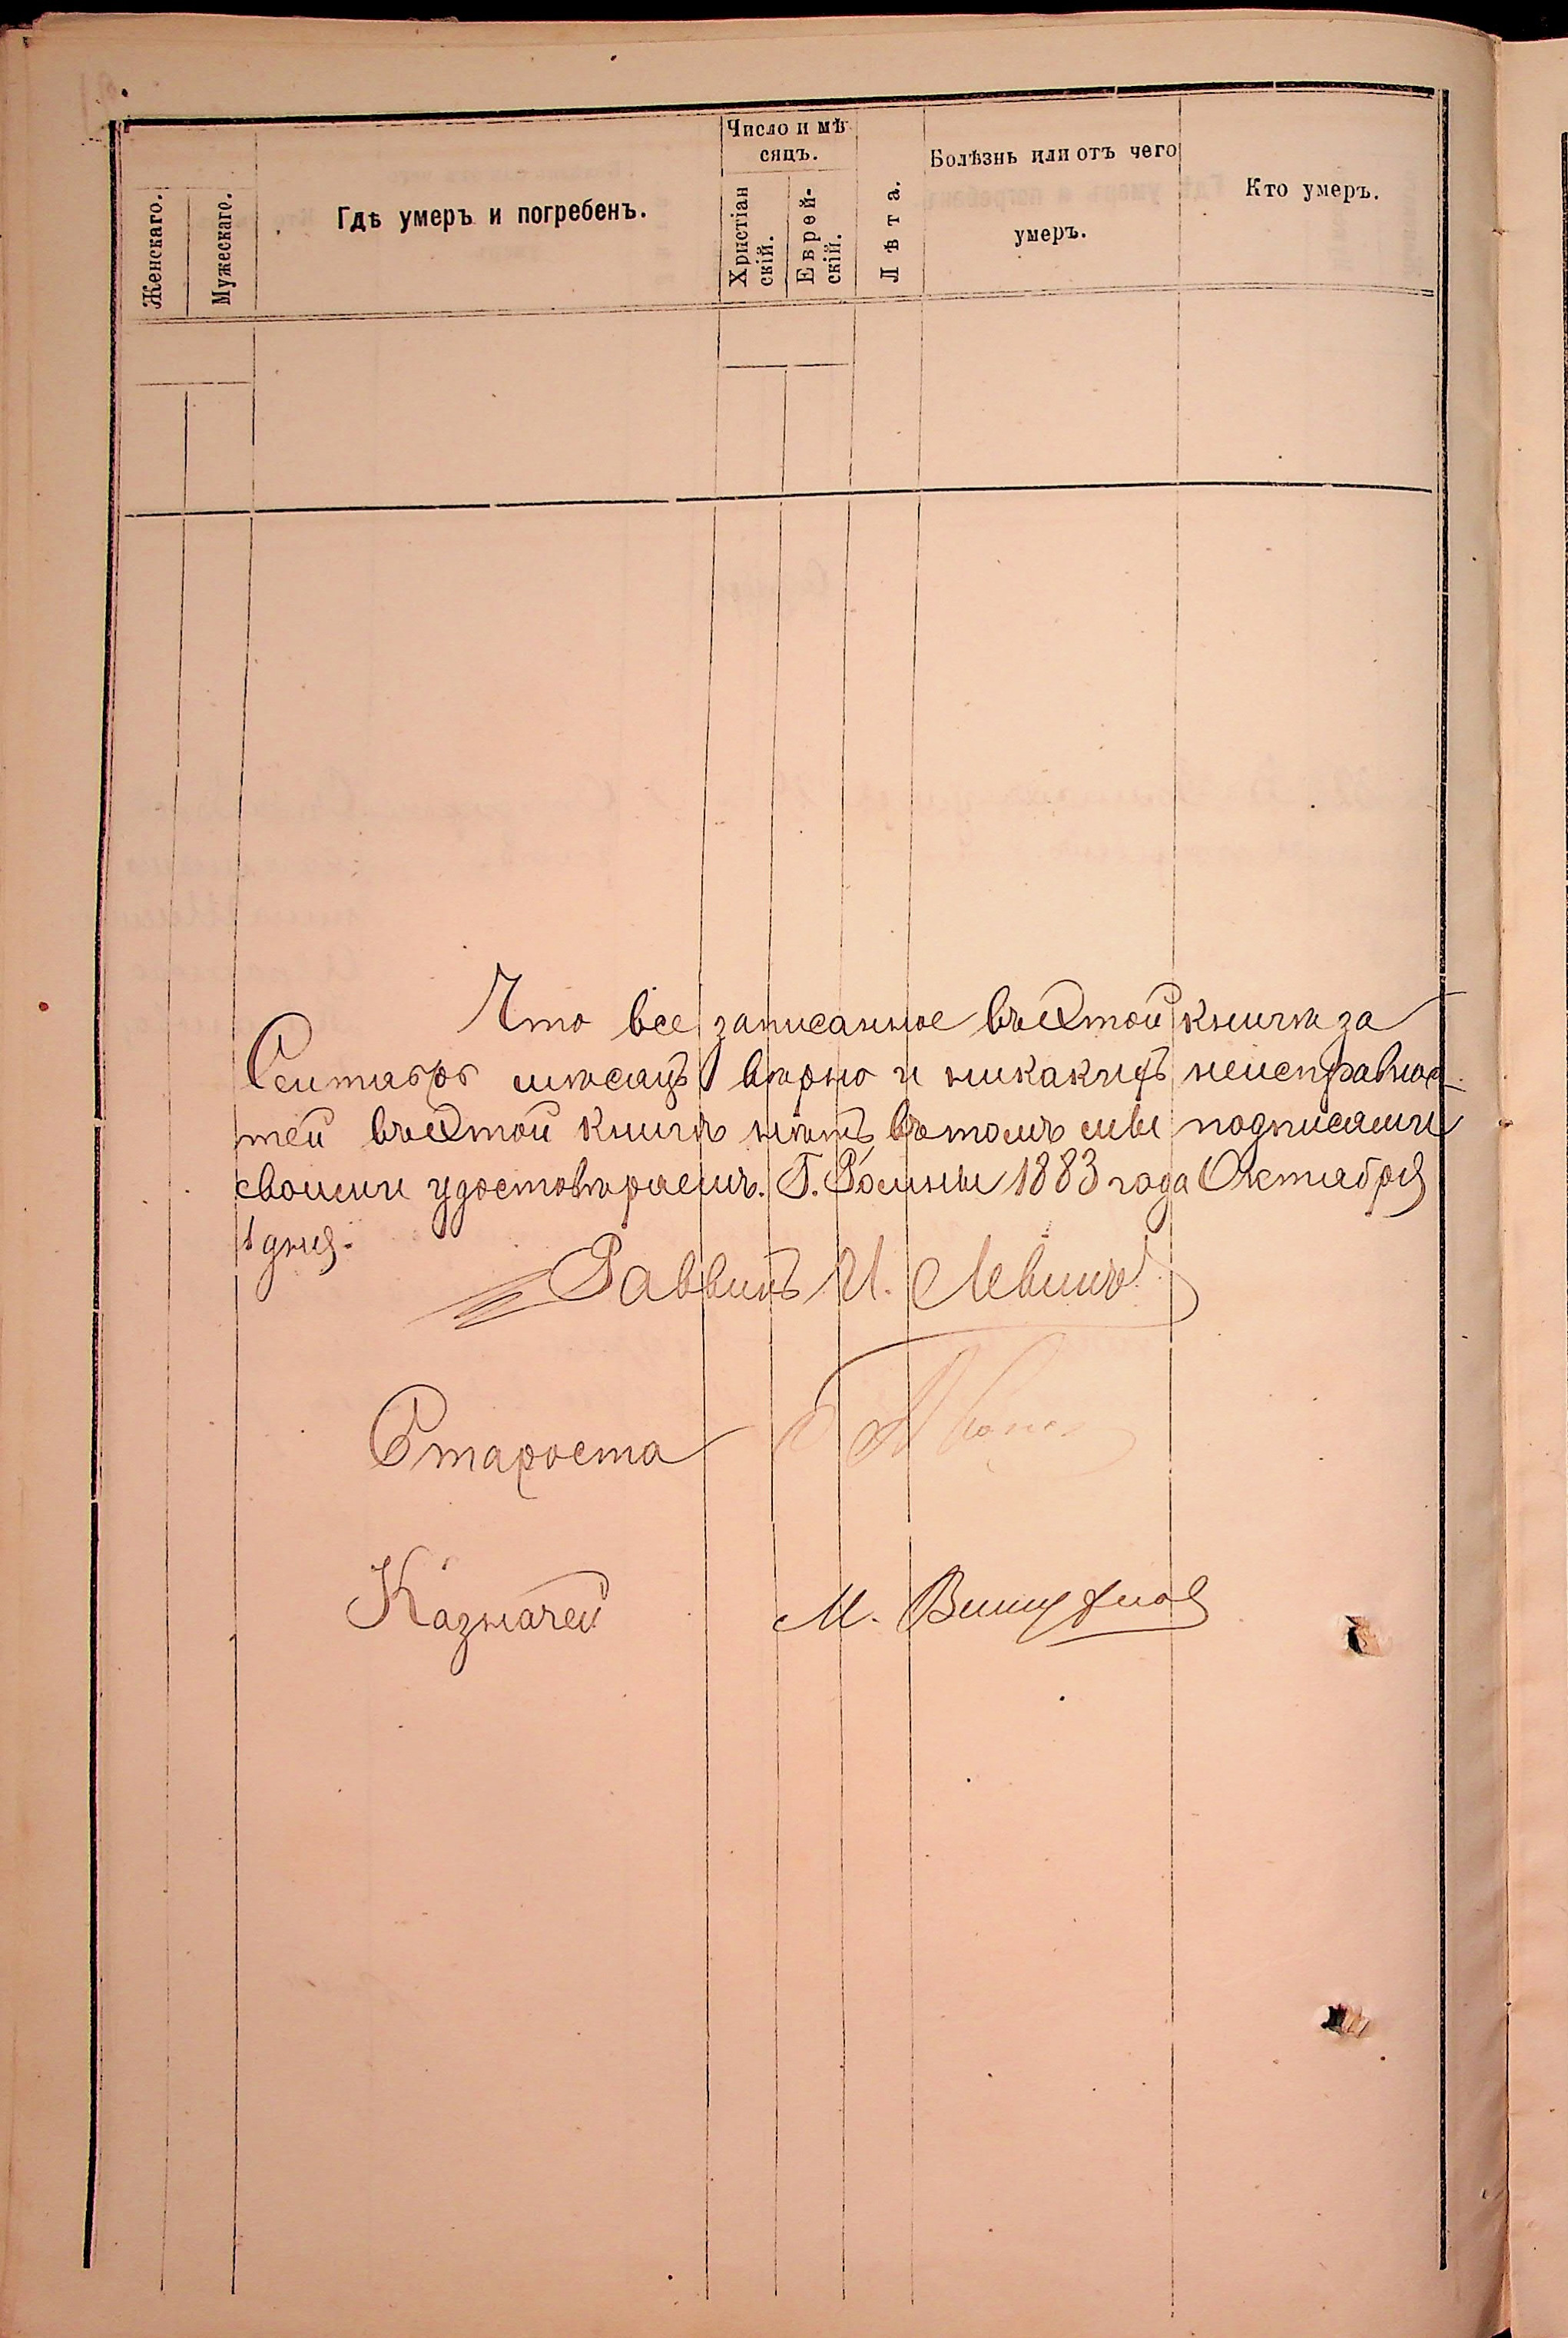 Женскаго.
Мужескаго.
Гдѣ умеръ и погребенъ.
Число и мѣ-
сяцъ.
Христіан
скій.
Еврей-
скій.
Лѣта.
Болѣзнь или отъ чего
умеръ.
Кто умеръ.
Что все записанное въ этой книгѣ за
Сентябрь мѣсяцъ вѣрно и никакихъ неисправнос-
тей въ этой книгѣ нѣтъ, въ томъ мы подписами
своими удостовѣряемъ. Г. Ромны 1883 года Октября
1 дня.
Раввинъ И. Левинъ
Староста
Казначей М.